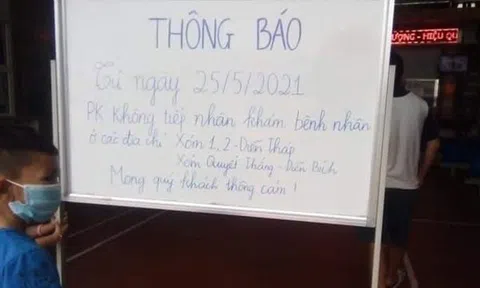 ƯỢNG - HIỆU QU
THÔNG BÁO
Từ ngày 25/5/2021
PK không tiếp nhận khám bệnh nhân
ở các địa chỉ Xóm 1, 2 - Diễn Tháp
Xóm Quyết Thắng - Diễn Bích
Mong quý khách thông cảm !